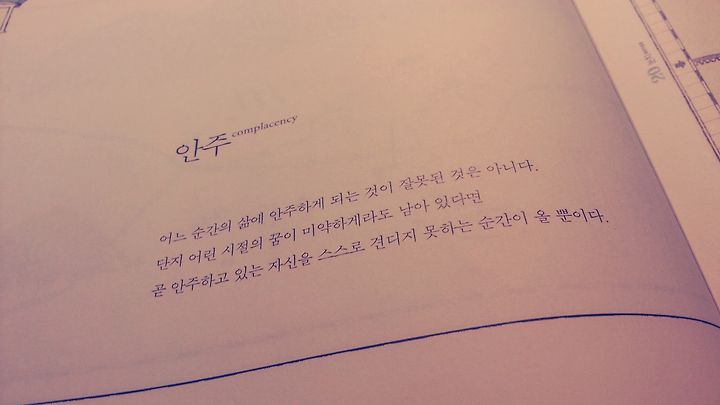 안주 complacency
어느 순간의 삶에 안주하게 되는 것이 잘못된 것은 아니다.
단지 어린 시절의 꿈이 미약하게라도 남아 있다면
곧 안주하고 있는 자신을 스스로 견디지 못하는 순간이 올 뿐이다.
20